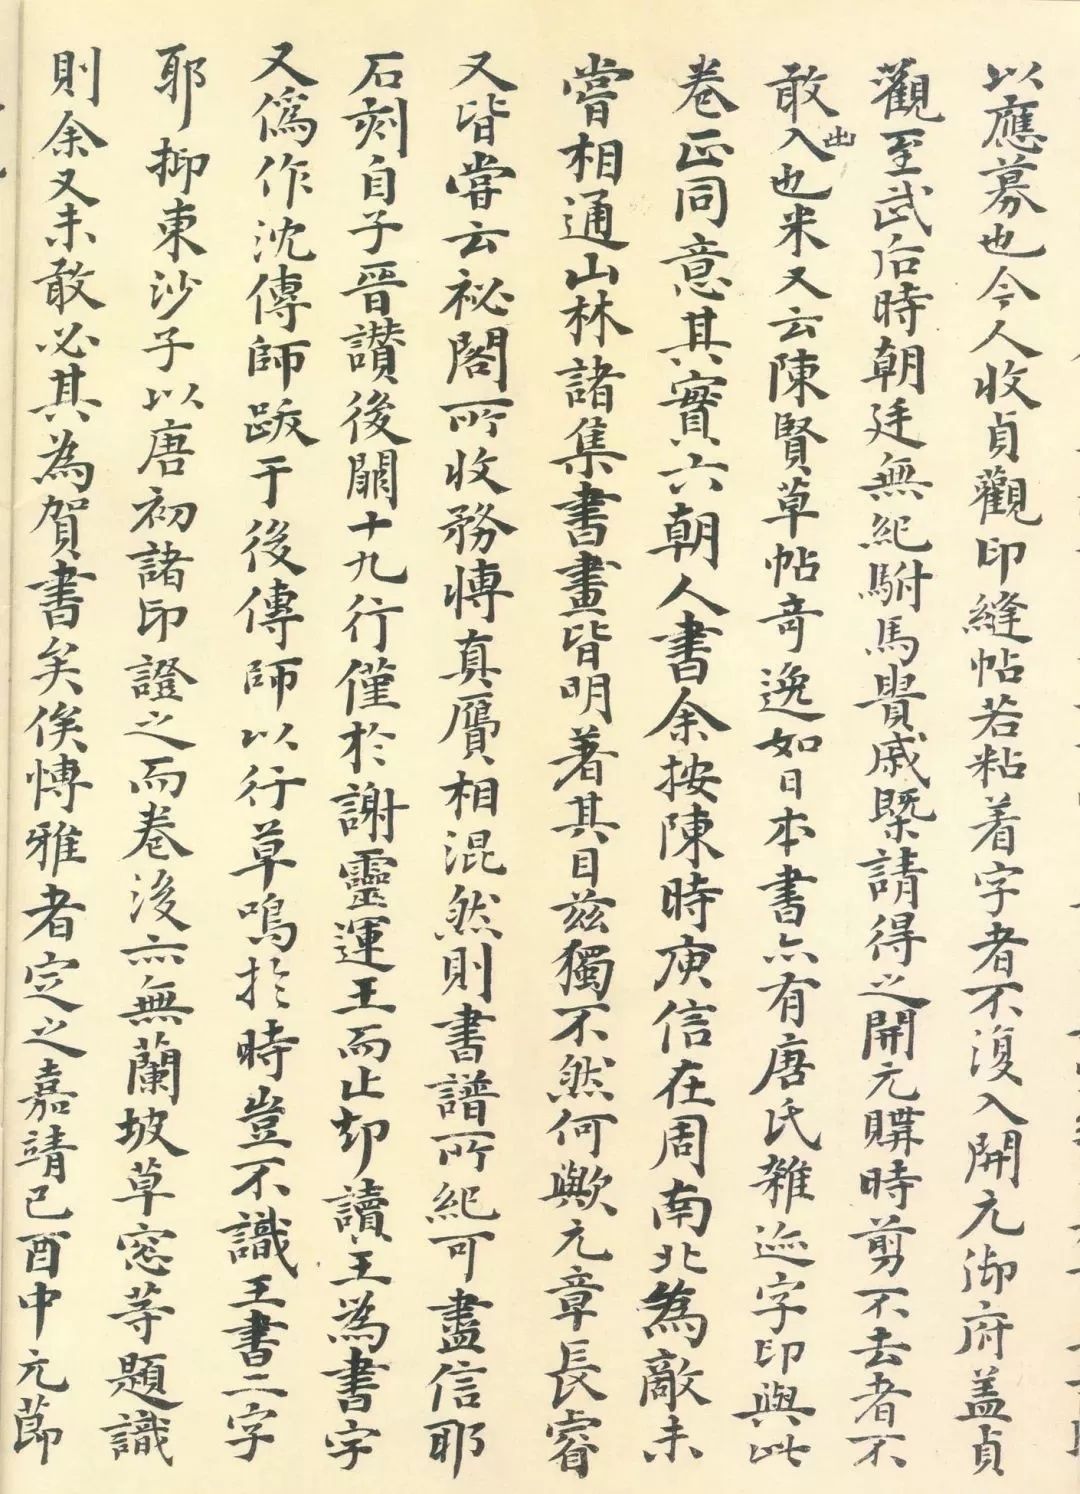 以應募也今人收貞觀印縫帖若粘着字者不復入開元御府盖貞
觀至武后時朝廷無紀駙馬貴戚槩請得之開元購時剪不去者不
敢入出也米又云陳賢草帖奇逸如日本書亦有唐氏雜迹字印與此
卷正同意其實六朝人書余按陳時庾信在周南北為敵未
嘗相通山林諸集書畫皆明著其目兹獨不然何歟元章長睿
又皆嘗云祕閣所收務慱真贗相混然則書譜所紀可盡信耶
石刻自子晉讃後闕十九行僅於謝靈運王而止却讀王為書字
又偽作沈傳師跋于後傳師以行草鳴於時豈不識王書二字
耶抑東沙子以唐初諸印證之而卷後亦無蘭坡草窓等題識
則余又未敢必其為賀書矣俟慱雅者定之嘉靖己酉中元節